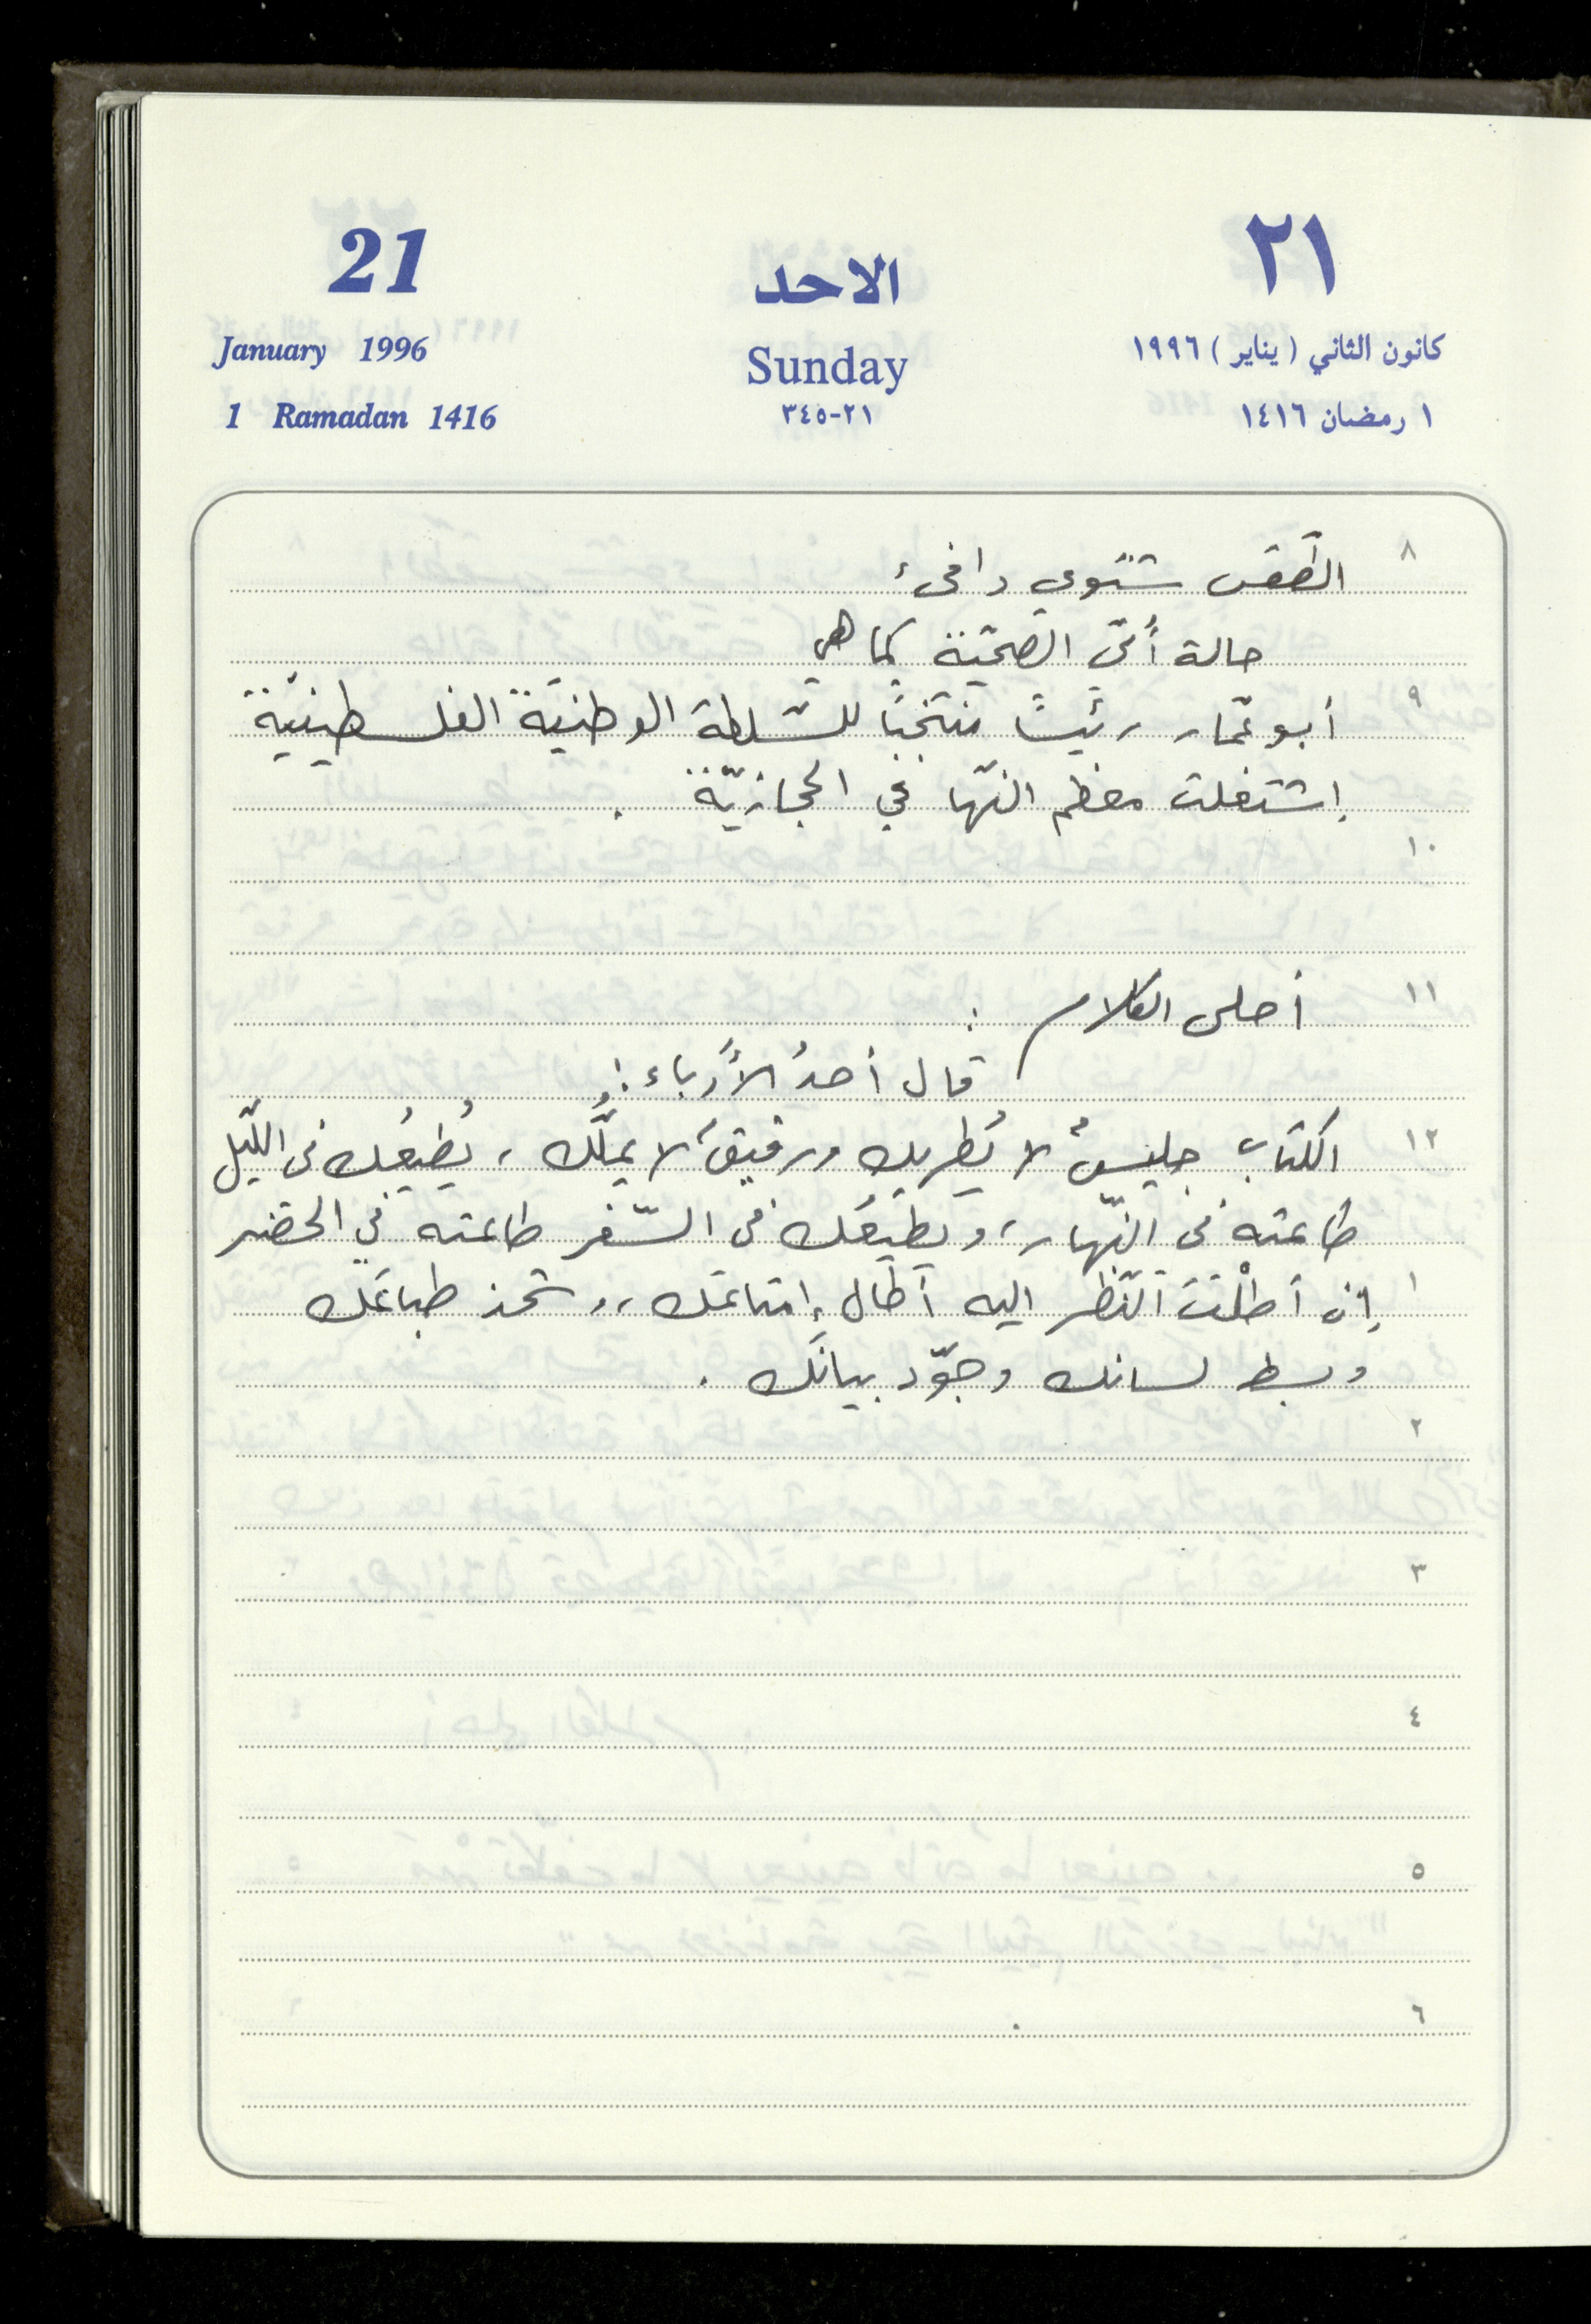 21 الاحد ٢١
January 1996 Sunday كانون الثاني (يناير) ١٩٩٦
1 Ramadan 1416 ٢١-٣٤٥ ١ رمضان ١٤١٦
٨ الطّقس شتوي دافئ
حالة أُمّي الصّحيّة كما هي
٩ أبو عمّار رئيسًا منتخبًا للسّلطة الوطنيّة الفلسطينيّة
إشتغلت معظم النّها في الحجازيّة .
١٠
١١ أحلى الكلام :
قال أحدُ الأُدباء :
١٢ الكتاب جليسٌ لا يُطريك ورفيقٌ لا يملُّك ، يُطيعُك في اللّيل
طاعته في النّهار ، ويطيعُك في السّفر طاعته في الحضر
١ إن أطلْتَ النّظر اليه أطال إمتاعَك ، وشحذ طباعَك
وبسط لسانك وجوّد بيانَك .
٢
٣
٤
٥
٦